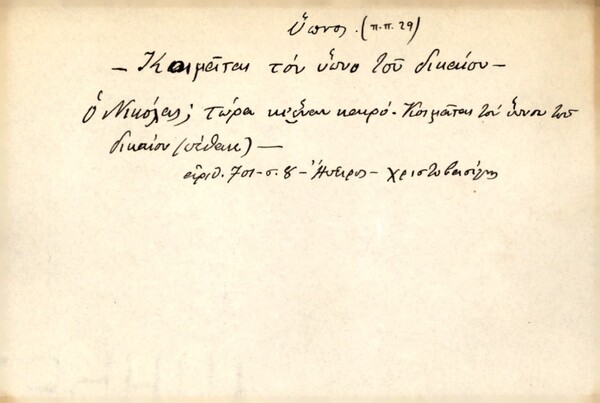 ὕπνος. (π.π. 29)
— Κοιμᾶται τὸν ὕπνο τοῦ δικαίου —
Ὁ Νικόλας; τώρα κι' ἕναν καιρό. Κοιμᾶται τὸν ὕπνον τοῦ
δικαίου (πέθανε) —
ἀριθ. 701 - σ. 8 - Ἤπειρος - Χριστοβασίλης